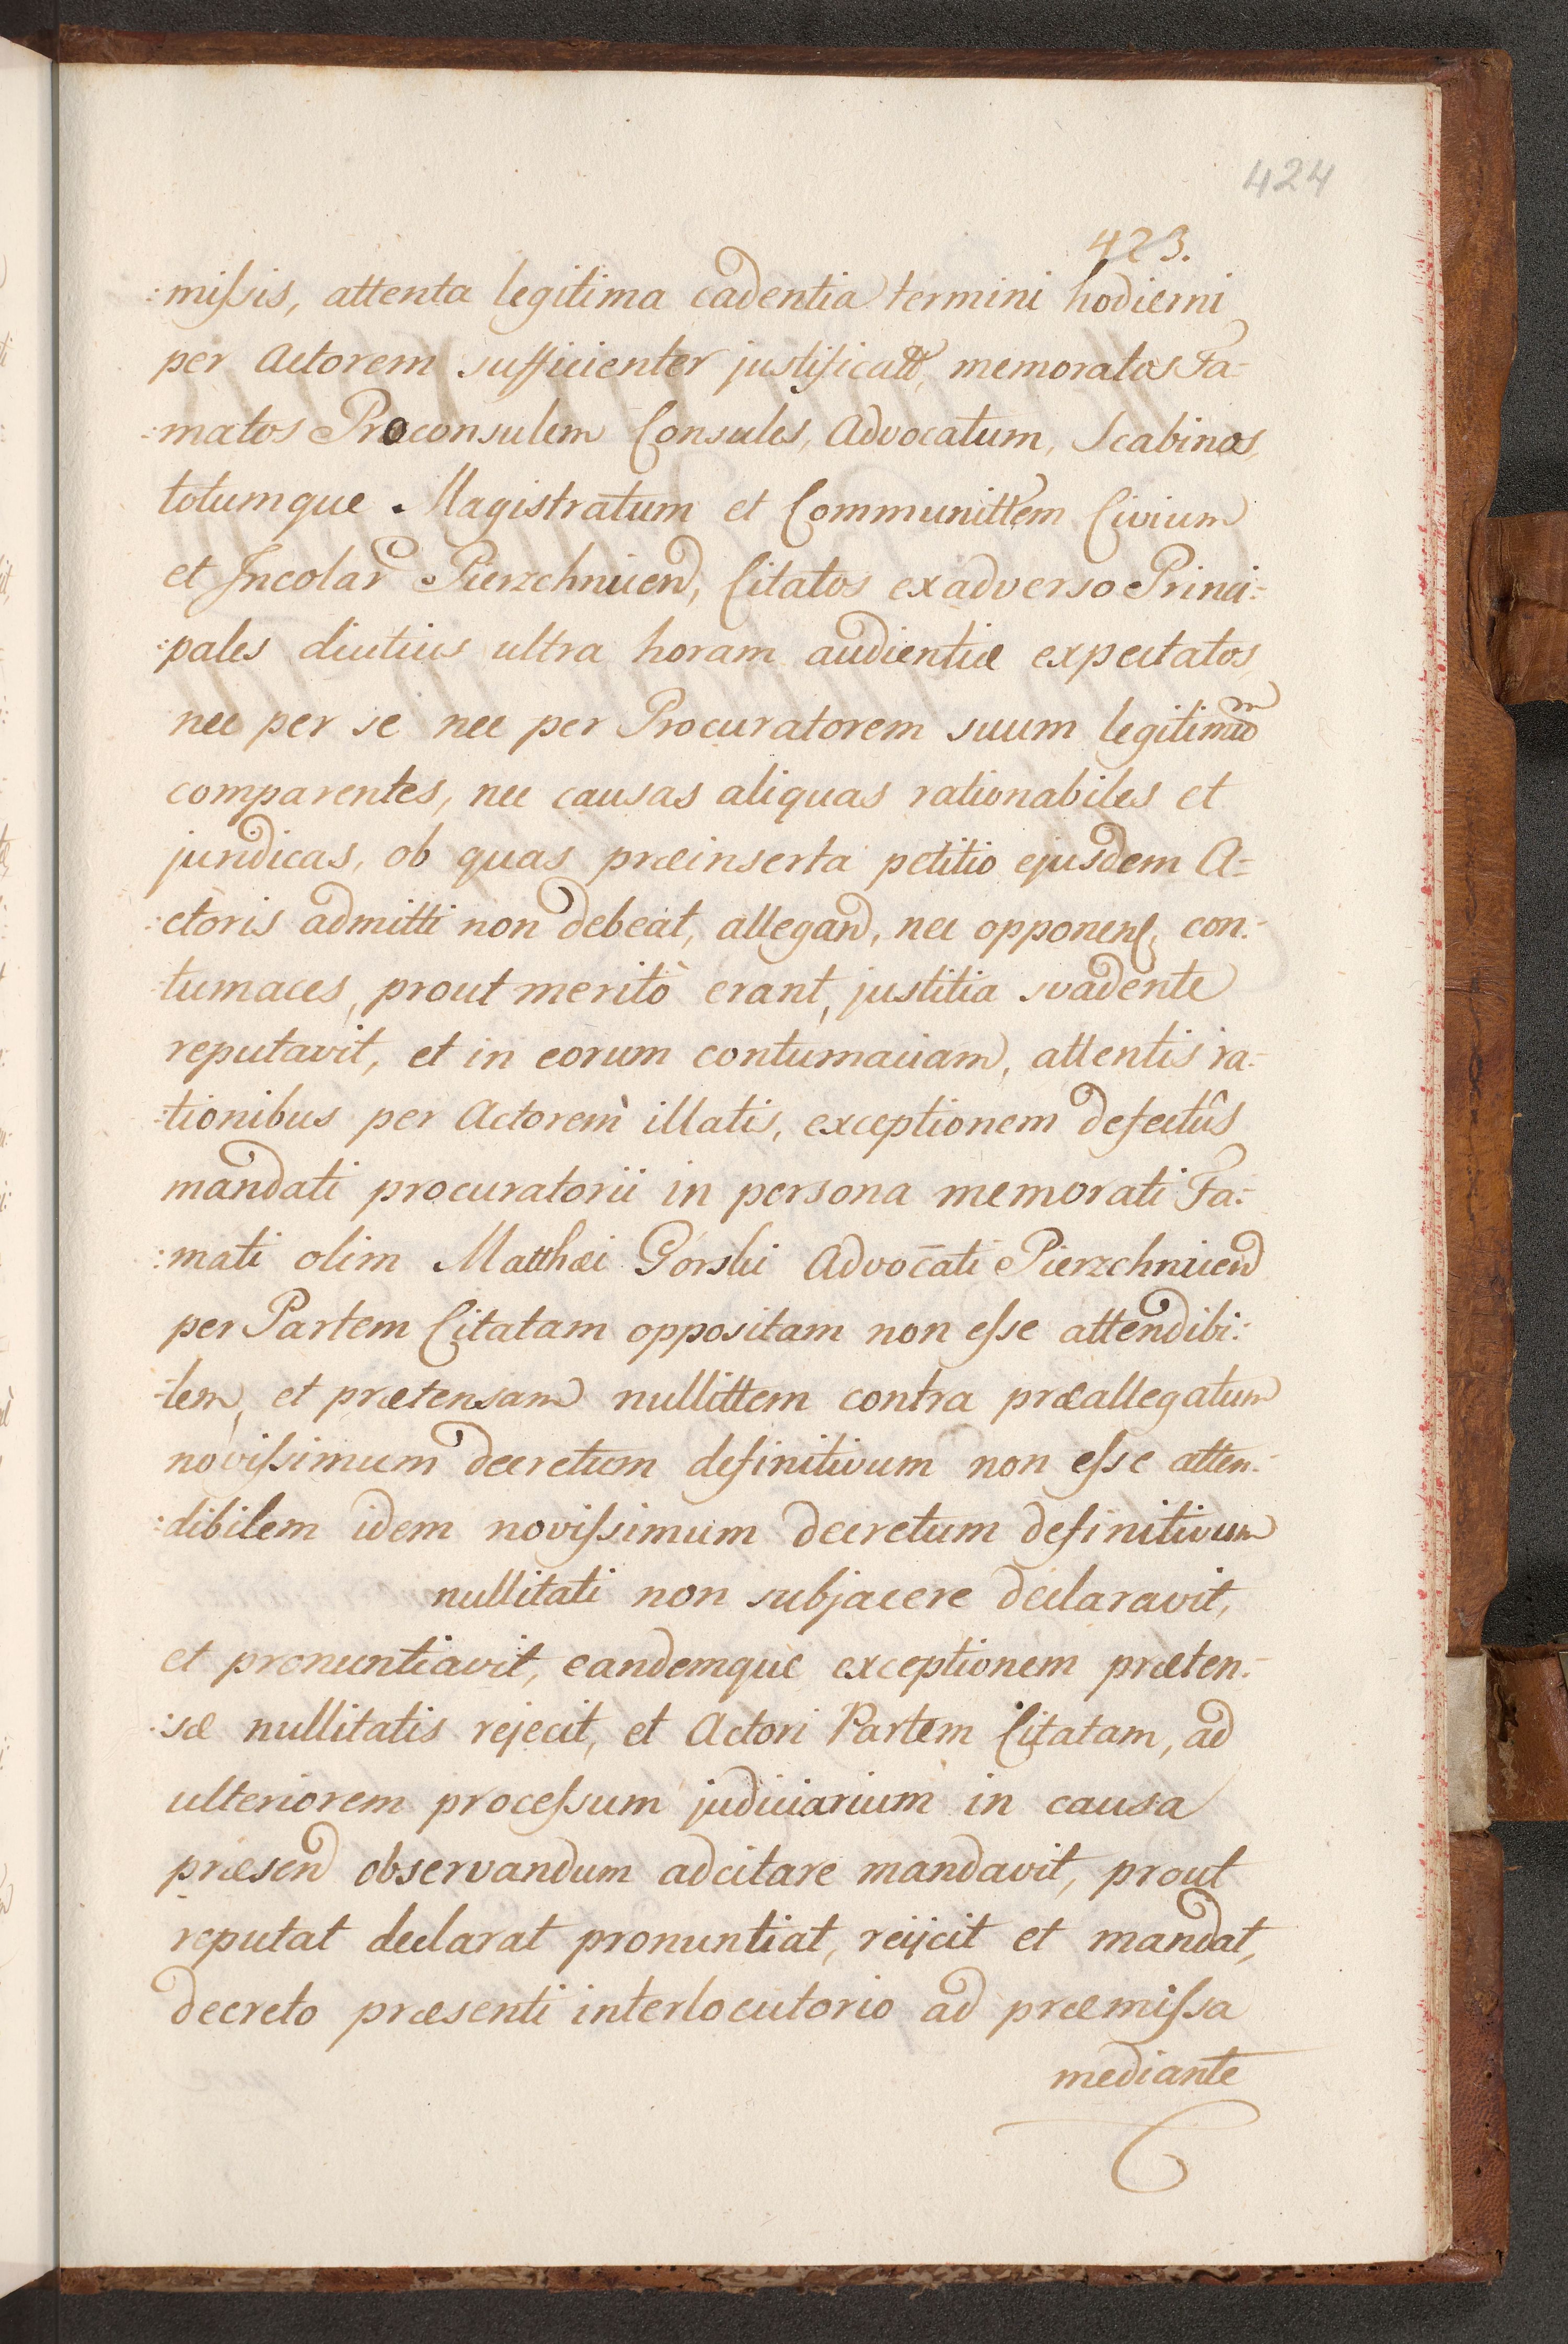 424
423.
:missis, attenta legitima cadentia termini hodierni
per Actorem sufficienter justificatt, memoratos Fa=
=matos Proconsulem Consules, Advocatum, Scabinos,
totumque Magistratum et Communittem Civium
et Incolar Pierzchnicen, Citatos ex adverso Princi:
:pales diutius ultra horam audientiæ expectatos,
nec per se nec per Procuratorem suum legitimum
comparentes, nec causas aliquas rationabiles et
juridicas, ob quas præinserta petitio ejusdem A=
:ctoris admitti non debeat, allegand, nec opponend, con=
:tumaces, prout meritò erant, justitia svadente
reputavit, et in eorum contumaciam, attentis ra=
:tionibus per Actorem illatis, exceptionem defectûs
mandati procuratorii in persona memorati Fa=
:mati olim Matthæi Gorski Advocati Pierzchnicen
per Partem Citatam oppositam non esse attendibi:
=lem, et prætensam nullittem contra præallegatum
novissimum decretum definitivum non esse atten=
:dibilem idem novissimum decretum definitivum
nullitati non subjacere declaravit,
et pronuntiavit, eandemque exceptionem præten=
:sæ nullitatis rejecit, et Actori Partem Citatam, ad
ulteriorem processum judiciarium in causa
præsen observandum adcitare mandavit, prout
reputat declarat pronuntiat, reijcit et mandat,
decreto præsenti interlocutorio ad præmissa
mediante